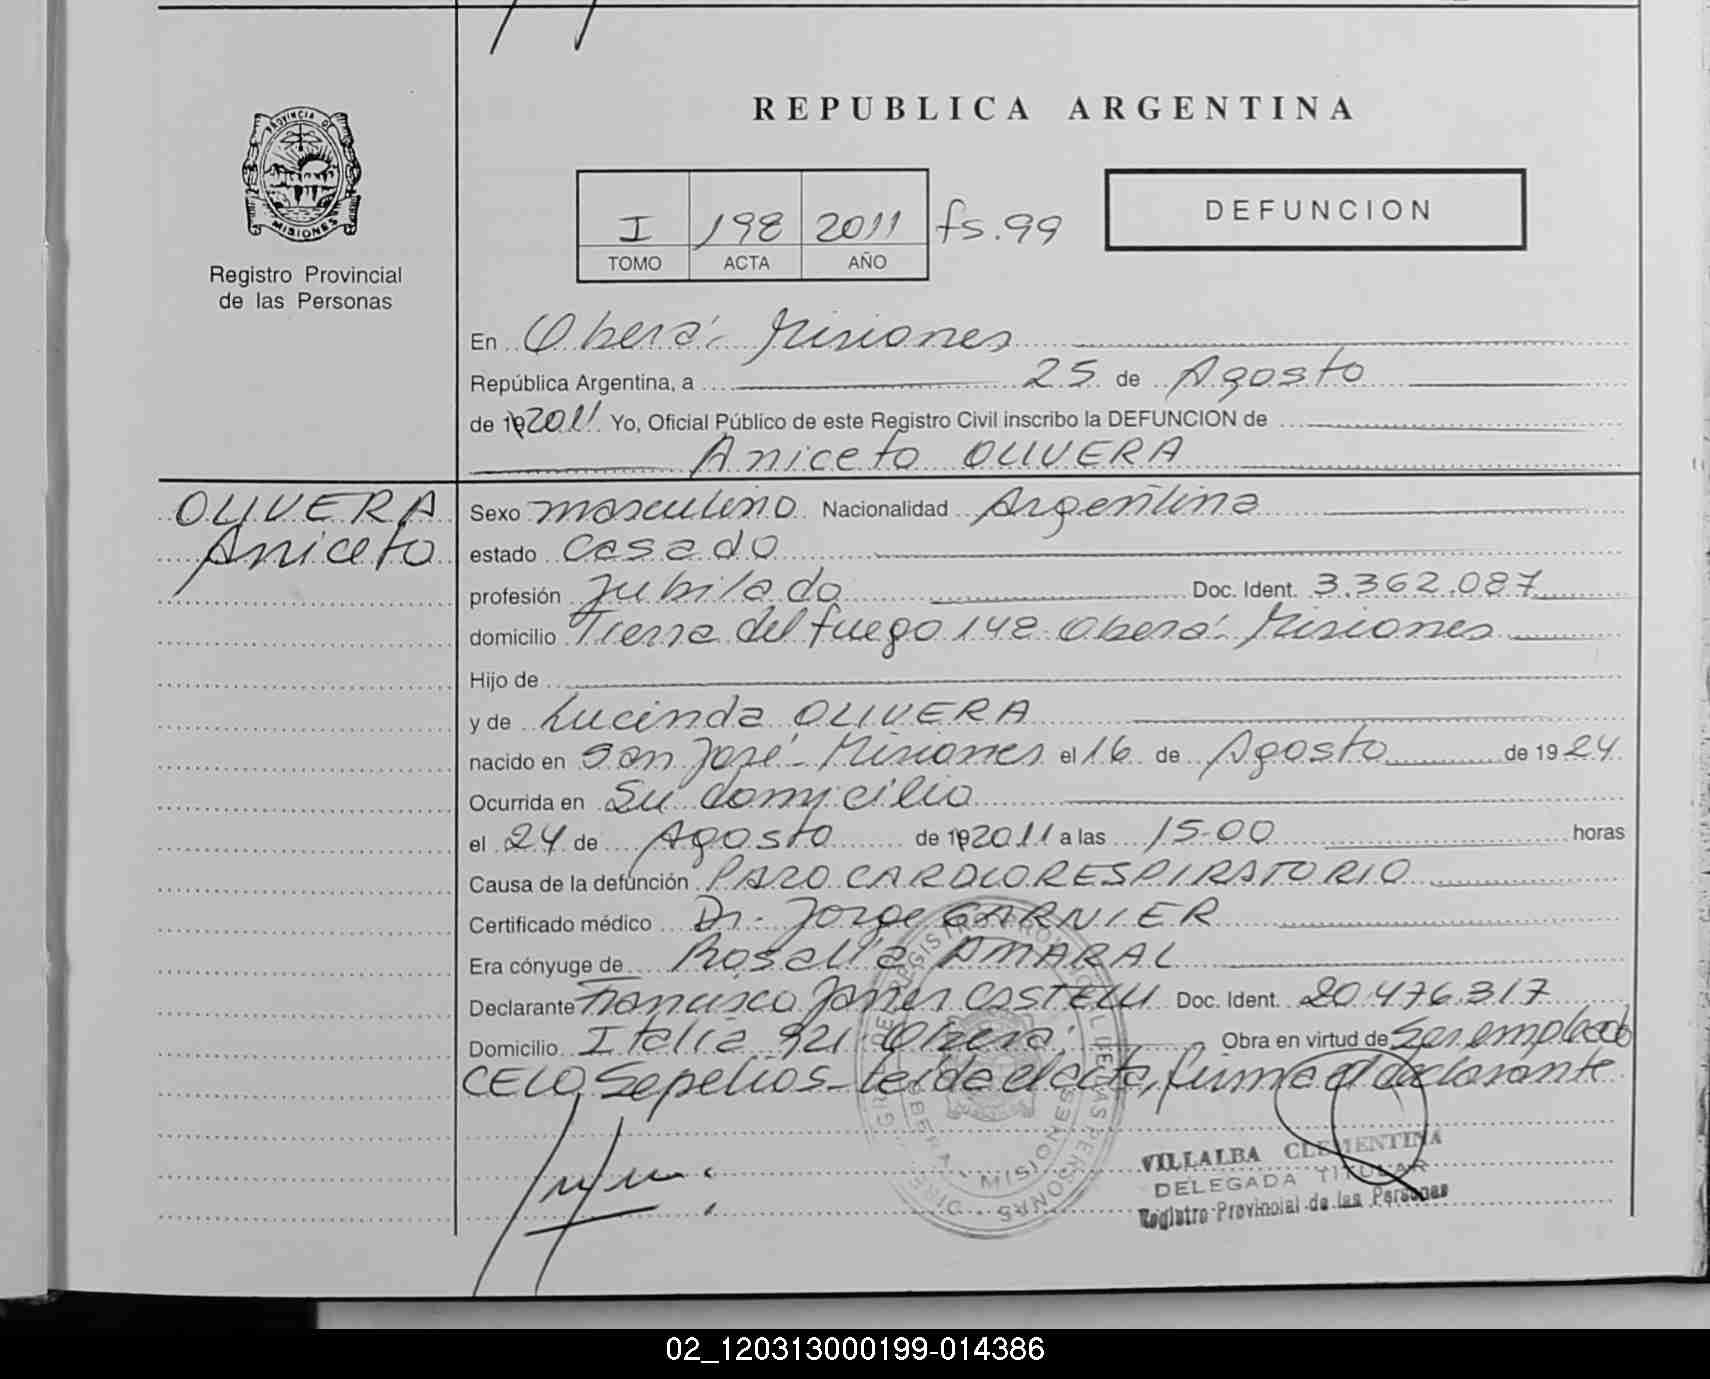 REPUBLICA ARGENTINA
PROVINCIA DE
MISIONES
Registro Provincial
de las Personas
I 198 2011 fs. 99
TOMO ACTA AÑO
DEFUNCION
En Oberá - Misiones
República Argentina, a 25 de Agosto
de 19 2011 Yo, Oficial Público de este Registro Civil inscribo la DEFUNCION de
Aniceto OLIVERA
OLIVERA
Aniceto
Sexo masculino Nacionalidad Argentina
estado casado
profesión Jubilado Doc. Ident. 3.362.087
domicilio Tierra del fuego 148 - Oberá - Misiones
Hijo de
y de Lucinda OLIVERA
nacido en San José - Misiones el 16 de Agosto de 19 24
Ocurrida en Su domicilio
el 24 de Agosto de 19 2011 a las 15-00 horas
Causa de la defunción PARO CARDIORESPIRATORIO
Certificado médico Dr. Jorge GARNIER
Era cónyuge de Rosalía AMARAL
Declarante Francisco Javier CASTELLI Doc. Ident. 20.476.317
Domicilio Italia 921 - Oberá - Obra en virtud de Ser empleado
CELO Sepelios - Leída el acta, firma el declarante
VILLALBA CLEMENTINA
DELEGADA TITULAR
Registro Provincial de las Personas
MISIONES
02_120313000199-014386